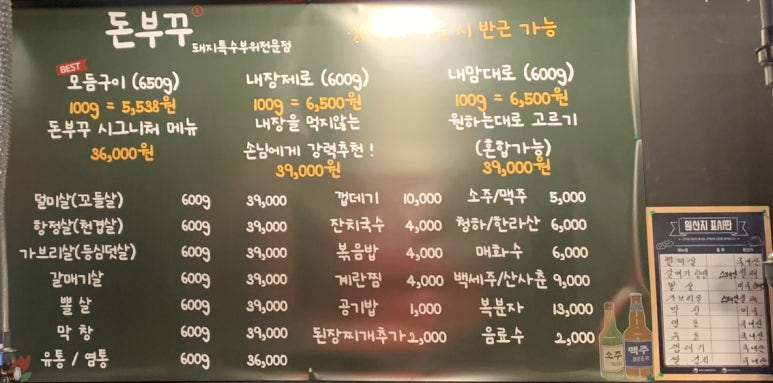 돈부꾸
돼지특수부위전문점
시 반근 가능
BEST
모듬구이 (650g)
100g = 5,538원
돈부꾸 시그니처 메뉴
36,000원
내장제로 (600g)
100g = 6,500원
내장을 먹지않는
손님에게 강력추천!
39,000원
내맘대로 (600g)
100g = 6,500원
원하는대로 고르기
(혼합가능)
39,000원
덜미살(꼬들살) 600g 39,000
항정살(천겹살) 600g 39,000
가브리살(등심덧살) 600g 39,000
갈매기살 600g 39,000
뽈살 600g 39,000
막창 600g 39,000
유통 / 염통 600g 36,000
껍데기 10,000
잔치국수 4,000
볶음밥 4,000
계란찜 4,000
공기밥 1,000
된장찌개추가 2,000
소주/맥주 5,000
청하/한라산 6,000
매화수 6,000
백세주/산사춘 9,000
복분자 13,000
음료수 2,000
소주
맥주
원산지 표시판